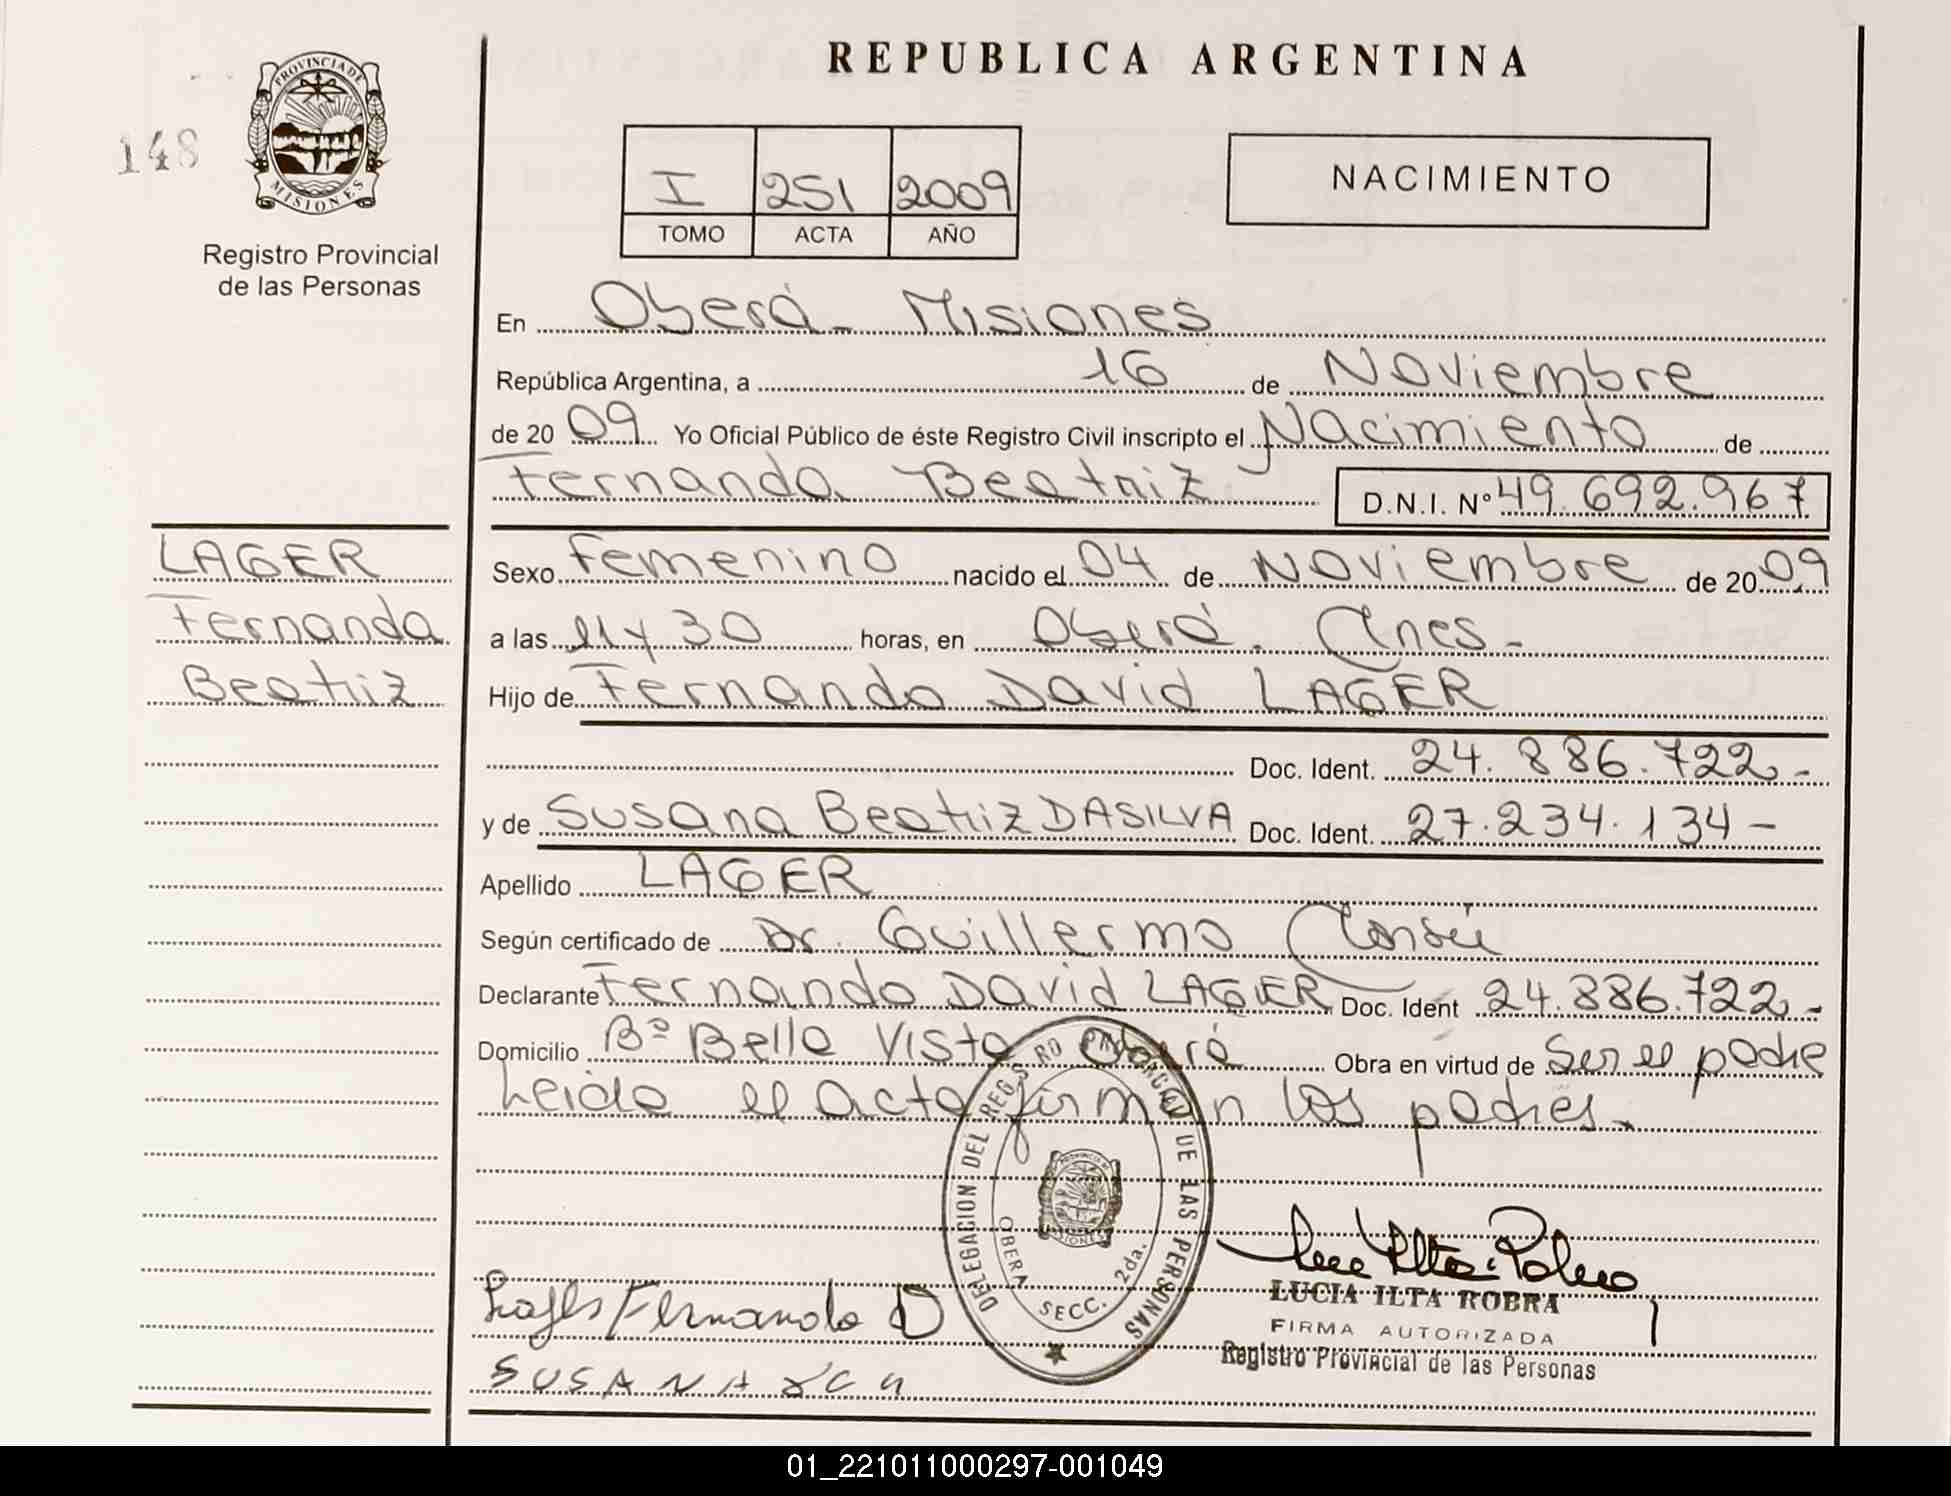 REPUBLICA ARGENTINA
148
PROVINCIA DE
MISIONES
Registro Provincial
de las Personas
I 251 2009
TOMO ACTA AÑO
NACIMIENTO
En Oberá - Misiones
República Argentina, a 16 de Noviembre
de 20 09 Yo Oficial Público de éste Registro Civil inscripto el Nacimiento de
Fernanda Beatriz D.N.I. Nº 49.692.967
LAGER
Fernanda
Beatriz
Sexo Femenino nacido el 04 de Noviembre de 20 09
a las 11 y 30 horas, en Oberá.
Hijo de Fernando David LAGER
Doc. Ident. 24.886.722-
y de Susana Beatriz DASILVA Doc. Ident. 27.234.134-
Apellido LAGER
Según certificado de Dr. Guillermo
Declarante Fernando David LAGER Doc. Ident 24.886.722-
Domicilio Bº Bella Vista Oberá Obra en virtud de Ser el padre
Leida el acta firman los padres.
DELEGACION DEL REGISTRO PROVINCIAL DE LAS PERSONAS
OBERA SECC. 2da.
MISIONES
Fernando D
LUCIA ILTA ROBRA
FIRMA AUTORIZADA
Registro Provincial de las Personas
SUSANA
01_221011000297-001049